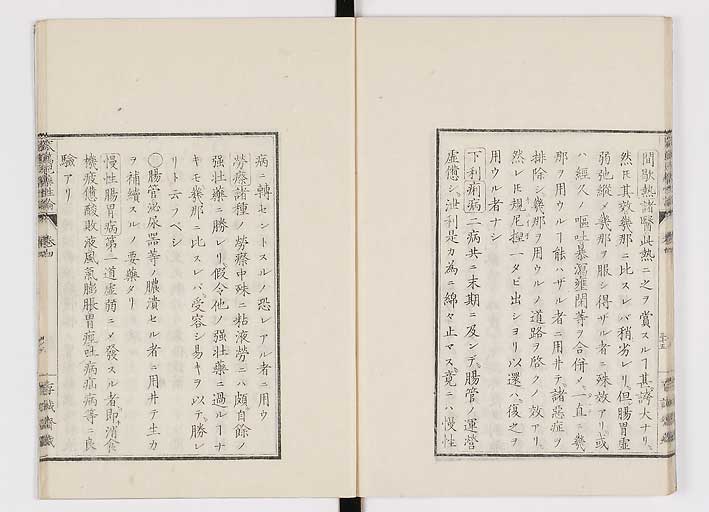 間歇熱諸醫此熱ニ之ヲ賞スルヿ其濟大ナリ
然𪜈其效幾那ニ比スレバ稍劣レリ但腸胃虚
弱弛縱メ幾那ヲ服シ得ザル者ニ殊效アリ或
ハ經久ノ嘔吐暴瀉壅閉等ヲ合併メ一直ニ幾
那ヲ用ウルヿ能ハザル者ニ用井テ諸惡症ヲ
排除シ幾那ヲ用ウルノ道路ヲ啓クノ效アリ
然レ𪜈規尼捏一タビ出シヨリ以還ハ復之ヲ
用ウル者ナシ
下利痢病二病共ニ末期ニ及ンデ腸管ノ運營
虚憊シ泄利是カ為ニ綿々止マス竟ニハ慢性
病ニ轉セントスルノ恐レアル者ニ用ウ
勞瘵諸種ノ勞瘵中殊ニ粘液勞ニハ頗自餘ノ
强壯藥ニ勝レリ假令他ノ强壯藥ニ過ルヿナ
キモ幾那ニ比スレバ受容シ易キヲ以テ勝レ
リト云フベシ
〇腸管泌尿器等ノ膿潰セル者ニ用井テ生力
ヲ補續スルノ要藥タリ
慢性腸胃病第一道虚弱ニメ發スル者即消食
機疲憊酸敗液風氣膨脹胃痙吐病疝病等ニ良
驗アリ
存誠齋藏